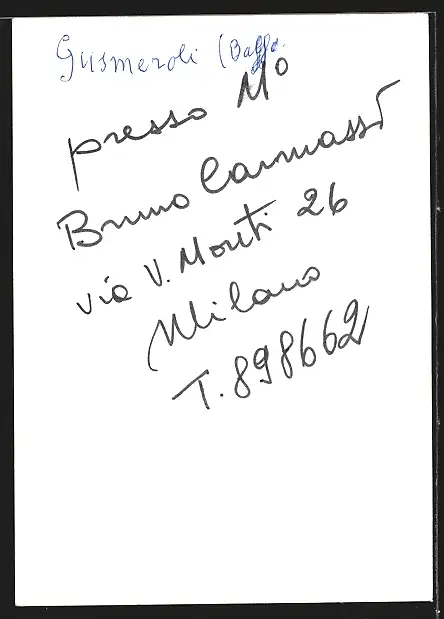 Gusmeroli (Baffo.
presso M°
Bruno Carmassi
via V. Monti 26
Milano
T. 898662